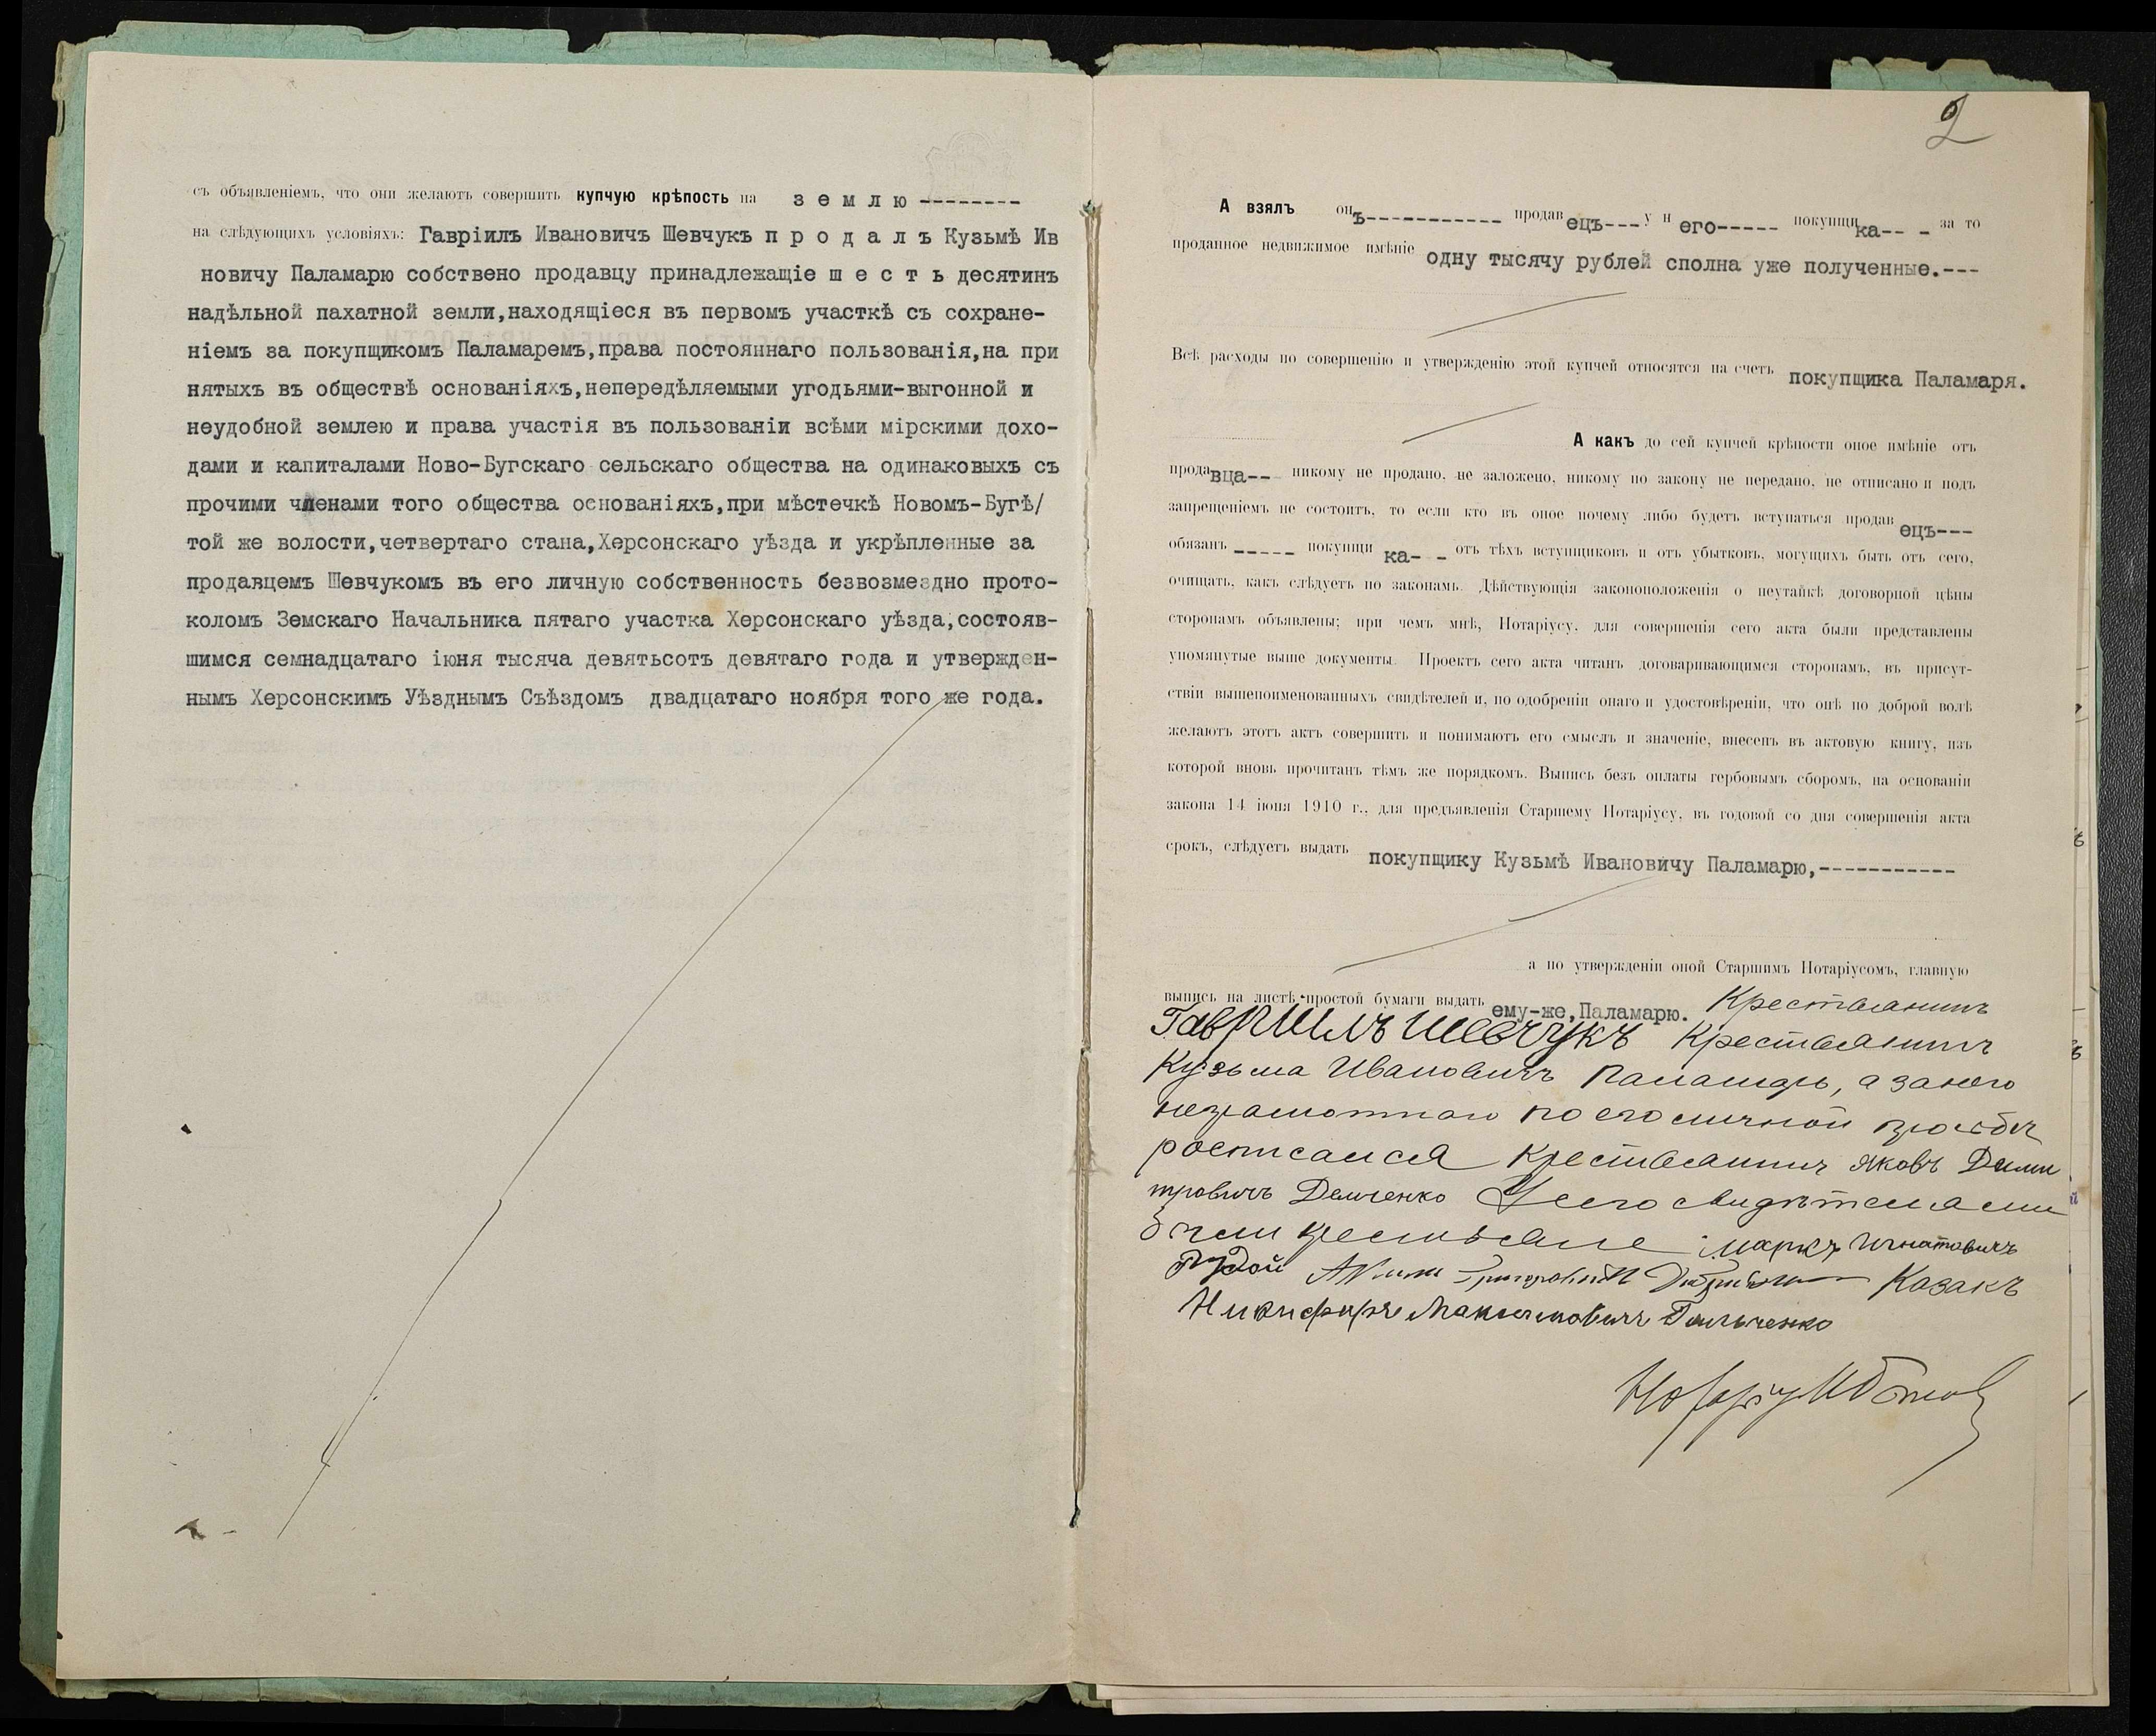 съ объявленіемъ, что они желаютъ совершить купчую крѣпость на з е м л ю --------
на слѣдующихъ условіяхъ: Гавріилъ Ивановичъ Шевчукъ п р о д а л ъ Кузьмѣ Ив
новичу Паламарю собствено продавцу принадлежащіе ш е с т ь десятинъ
надѣльной пахатной земли,находящіеся въ первомъ участкѣ съ сохране-
ніемъ за покупщикомъ Паламаремъ,права постояннаго пользованія,на при
нятыхъ въ обществѣ основаніяхъ,непередѣляемыми угодьями-выгонной и
неудобной землею и права участія въ пользованіи всѣми мірскими дохо-
дами и капиталами Ново-Бугскаго сельскаго общества на одинаковыхъ съ
прочими членами того общества основаніяхъ,при мѣстечкѣ Новомъ-Бугѣ/
той же волости,четвертаго стана,Херсонскаго уѣзда и укрѣпленные за
продавцемъ Шевчукомъ въ его личную собственность безвозмездно прото-
коломъ Земскаго Начальника пятаго участка Херсонскаго уѣзда,состояв-
шимся семнадцатаго іюня тысяча девятьсотъ девятаго года и утвержден-
нымъ Херсонскимъ Уѣзднымъ Съѣздомъ двадцатаго ноября того же года.
2
А взялъ онъ----------- продавецъ--- у него----- покупщика-- - за то
проданное недвижимое имѣніе одну тысячу рублей сполна уже полученные.---
Всѣ расходы по совершенію и утвержденію этой купчей относятся на счетъ покупщика Паламаря.
А какъ до сей купчей крѣпости оное имѣніе отъ
продавца-- никому не продано, не заложено, никому по закону не передано, не отписано и подъ
запрещеніемъ не состоитъ, то если кто въ оное почему либо будетъ вступаться продавецъ---
обязанъ ----- покупщика- - отъ тѣхъ вступщиковъ и отъ убытковъ, могущихъ быть отъ сего,
очищать, какъ слѣдуетъ по законамъ. Дѣйствующія законоположенія о неутайкѣ договорной цѣны
сторонамъ объявлены; при чемъ мнѣ, Нотаріусу, для совершенія сего акта были представлены
упомянутые выше документы. Проектъ сего акта читанъ договаривающимся сторонамъ, въ присут-
ствіи вышепоименованныхъ свидѣтелей и, по одобреніи онаго и удостовѣреніи, что онѣ по доброй волѣ
желаютъ этотъ актъ совершить и понимаютъ его смыслъ и значеніе, внесенъ въ актовую книгу, изъ
которой вновь прочитанъ тѣмъ же порядкомъ. Выпись безъ оплаты гербовымъ сборомъ, на основаніи
закона 14 іюня 1910 г., для предъявленія Старшему Нотаріусу, въ годовой со дня совершенія акта
срокъ, слѣдуетъ выдать покупщику Кузьмѣ Ивановичу Паламарю,-----------
а по утвержденіи оной Старшимъ Нотаріусомъ, главную
выпись на листѣ простой бумаги выдать ему-же,Паламарю. Крестьянинъ
Гавриилъ Шевчукъ Крестьянинъ
Кузьма Ивановичъ Паламарь, а за него
неграмотнаго по его личной просьбѣ
росписался Крестьянинъ Яковъ Дими
тровичъ Демченко У сего свидѣтелями
были крестьяне Маркъ Игнатовичъ
Рудой Григоровичъ Казакъ
Никифоръ Максимовичъ